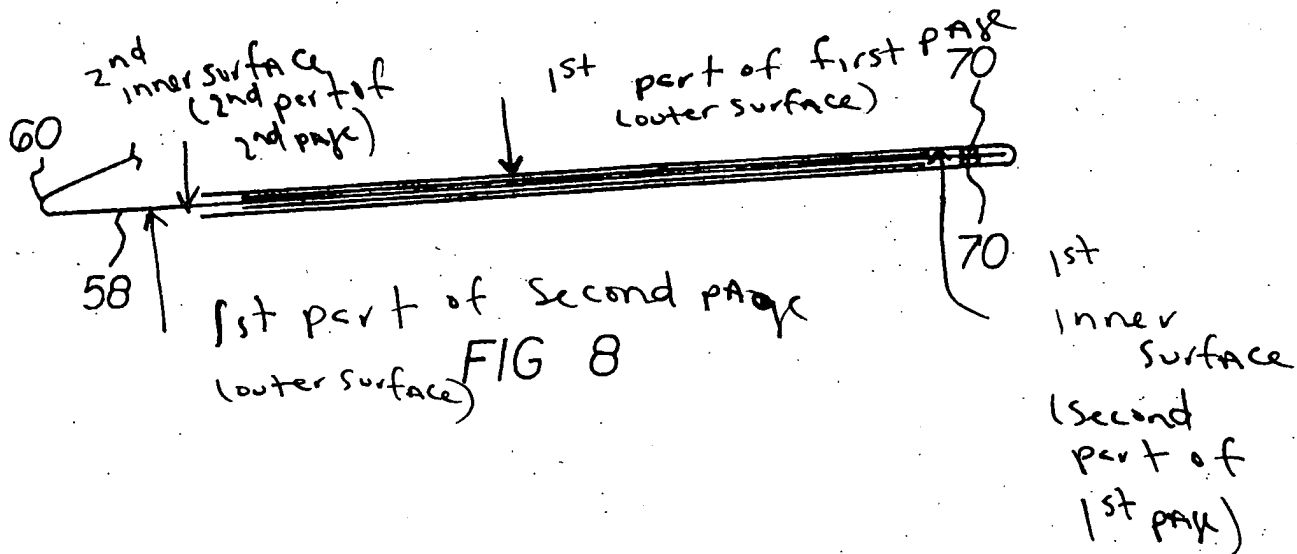 60
2nd
inner surface
(2nd part of
2nd page)
1st part of first page
(outer surface)
70
58
1st part of Second page
(outer surface)
FIG 8
70
1st
inner
surface
(second
part of
1st page)